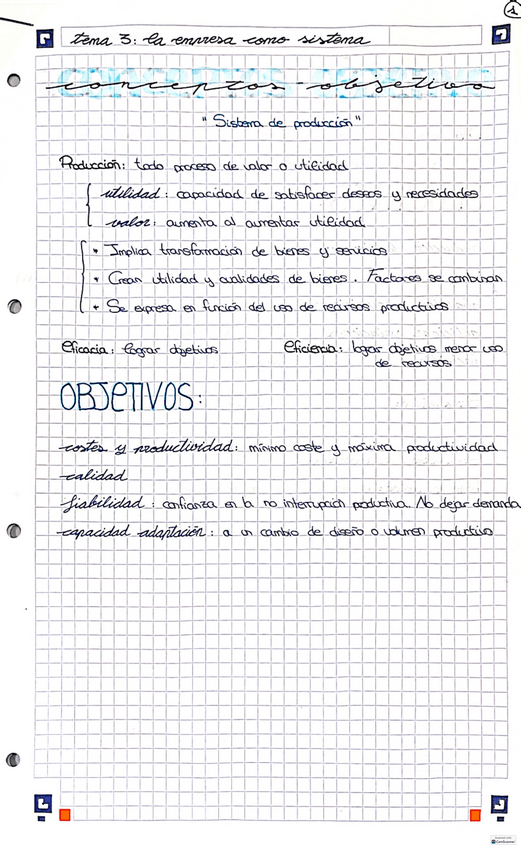 1
tema 3: la empresa como sistema
conceptos - objetivo
"Sistema de producción"
Producción: todo proceso de valor o utilidad
utilidad: capacidad de satisfacer deseos y necesidades
valor: aumenta al aumentar utilidad
• Implica transformación de bienes y servicios
• Crean utilidad y cualidades de bienes. Factores se combinan
• Se expresa en función del uso de recursos productivos
Eficacia: lograr objetivos
Eficiencia: lograr objetivos menor uso
de recursos
OBJETIVOS:
costes y productividad: mínimo coste y máxima productividad
calidad
fiabilidad: confianza en la no interrupción productiva. No dejar demanda
capacidad adaptación: a un cambio de diseño o volumen productivo
CamScanner